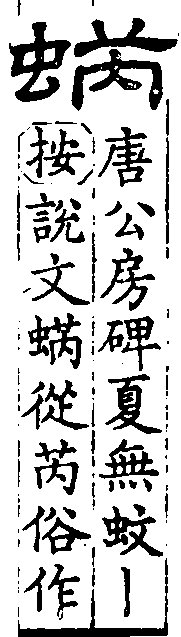 蜹
唐公房碑夏無蚊丨
按說文蜹從芮俗作